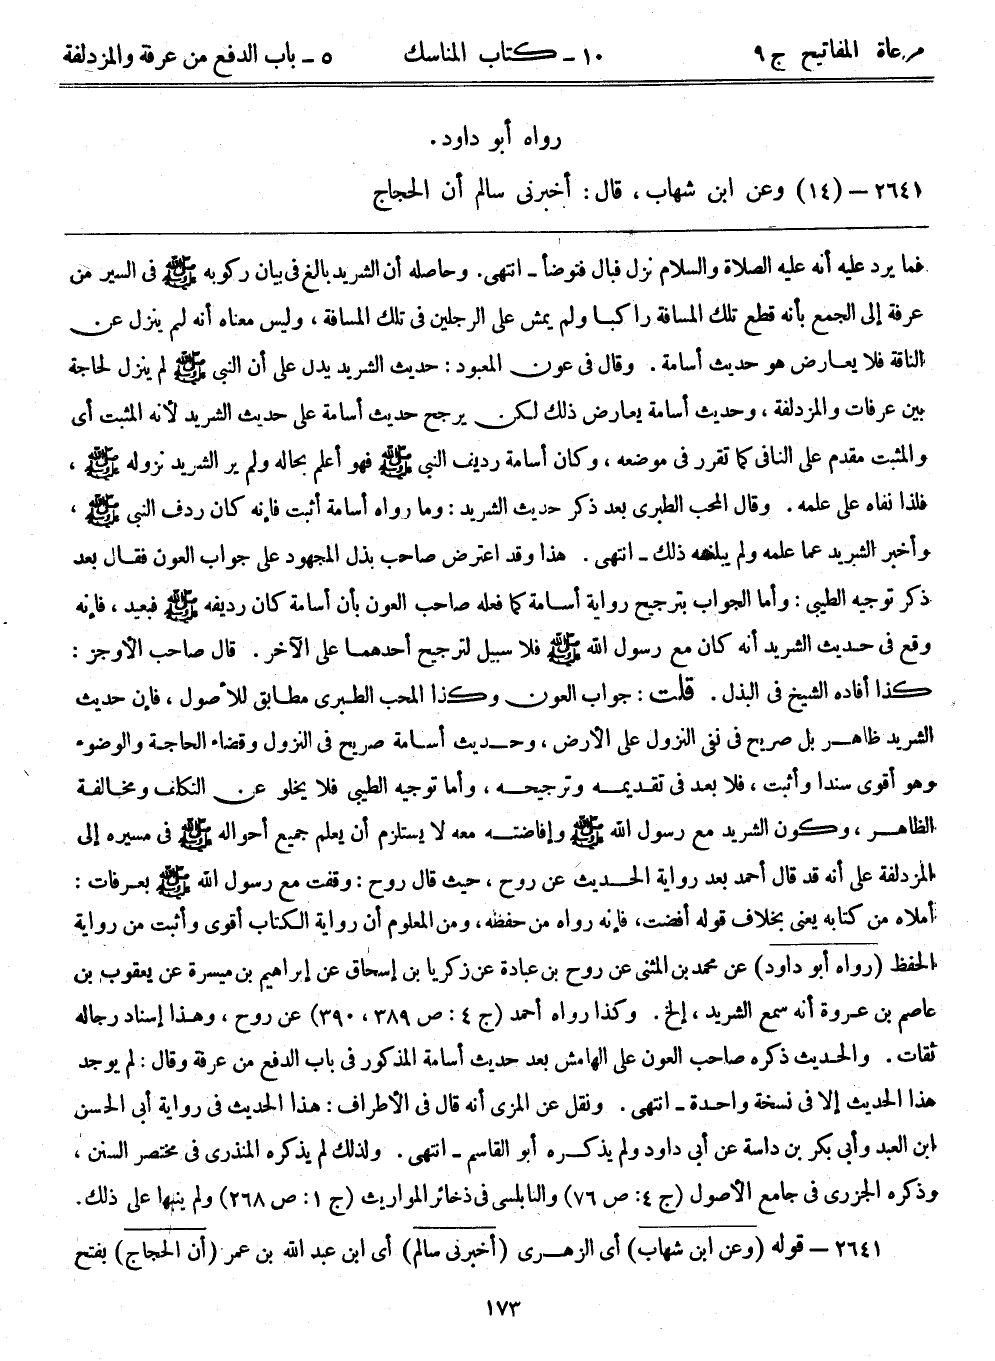 مرعاة المفاتيح ج ٩ ١٠ ـ كتاب المناسك ٥ ـ باب الدفع من عرفة والمزدلفة
رواه أبو داود .
٢٦٤١ – (١٤) وعن ابن شهاب ، قال : أخبرنى سالم أن الحجاج
فما يرد عليه أنه عليه الصلاة والسلام نزل فبال فتوضأ ـ انتهى. وحاصله أن الشريد بالغ فى بيان ركوبه ﷺ فى السير من
عرفة إلى الجمع بأنه قطع تلك المسافة راكبا ولم يمش على الرجلين فى تلك المسافة ، وليس معناه أنه لم ينزل عن
الناقة فلا يعارض هو حديث أسامة . وقال فى عون المعبود : حديث الشريد يدل على أن النبى ﷺ لم ينزل لحاجة
بين عرفات والمزدلفة ، وحديث أسامة يعارض ذلك لكن يرجح حديث أسامة على حديث الشريد لأنه المثبت أى
والمثبت مقدم على النافى كما تقرر فى موضعه ، وكان أسامة رديف النبى ﷺ فهو أعلم بحاله ولم ير الشريد نزوله ﷺ ،
فلذا نفاه على علمه . وقال المحب الطبرى بعد ذكر حديث الشريد : وما رواه أسامة أثبت فإنه كان ردف النبى ﷺ ،
وأخبر الشريد عما علمه ولم يبلغه ذلك ـ انتهى . هذا وقد اعترض صاحب بذل المجهود على جواب العون فقال بعد
ذكر توجيه الطيبى : وأما الجواب بترجيح رواية أسامة كما فعله صاحب العون بأن أسامة كان رديفه ﷺ فبعيد ، فإنه
وقع فى حديث الشريد أنه كان مع رسول الله ﷺ فلا سبيل لترجيح أحدهما على الآخر . قال صاحب الأوجز :
كذا أفاده الشيخ فى البذل . قلت : جواب العون وكذا المحب الطبرى مطابق للأصول ، فإن حديث
الشريد ظاهر بل صريح فى نفى النزول على الأرض ، وحديث أسامة صريح فى النزول وقضاء الحاجة والوضوء
وهو أقوى سندا وأثبت ، فلا بعد فى تقديمه وترجيحه ، وأما توجيه الطيبى فلا يخلو عن التكلف ومخالفة
الظاهر ، وكون الشريد مع رسول الله ﷺ وإفاضته معه لا يستلزم أن يعلم جميع أحواله ﷺ فى مسيره إلى
المزدلفة على أنه قد قال أحمد بعد رواية الحديث عن روح ، حيث قال روح : وقفت مع رسول الله ﷺ بعرفات :
أملاه من كتابه يعنى بخلاف قوله أفضت، فإنه رواه من حفظه، ومن المعلوم أن رواية الكتاب أقوى وأثبت من رواية
الحفظ (رواه أبو داود) عن محمد بن المثنى عن روح بن عبادة عن زكريا بن إسحاق عن إبراهيم بن ميسرة عن يعقوب بن
عاصم بن عروة أنه سمع الشريد ، إلخ . وكذا رواه أحمد (ج ٤ : ص ٣٨٩ ، ٣٩٠) عن روح ، وهذا إسناد رجاله
ثقات . والحديث ذكره صاحب العون على الهامش بعد حديث أسامة المذكور فى باب الدفع من عرفة وقال : لم يوجد
هذا الحديث إلا فى نسخة واحدة ـ انتهى . ونقل عن المزى أنه قال فى الأطراف : هذا الحديث فى رواية أبى الحسن
ابن العبد وأبى بكر بن داسة عن أبى داود ولم يذكره أبو القاسم ـ انتهى . ولذلك لم يذكره المنذرى فى مختصر السنن ،
وذكره الجزرى فى جامع الأصول (ج ٤: ص ٧٦) والنابلسى فى ذخائر المواريث (ج ١ : ص ٢٦٨) ولم ينبها على ذلك.
٢٦٤١ – قوله (وعن ابن شهاب) أى الزهرى (أخبرنى سالم) أى ابن عبد الله بن عمر (أن الحجاج) بفتح
١٧٣